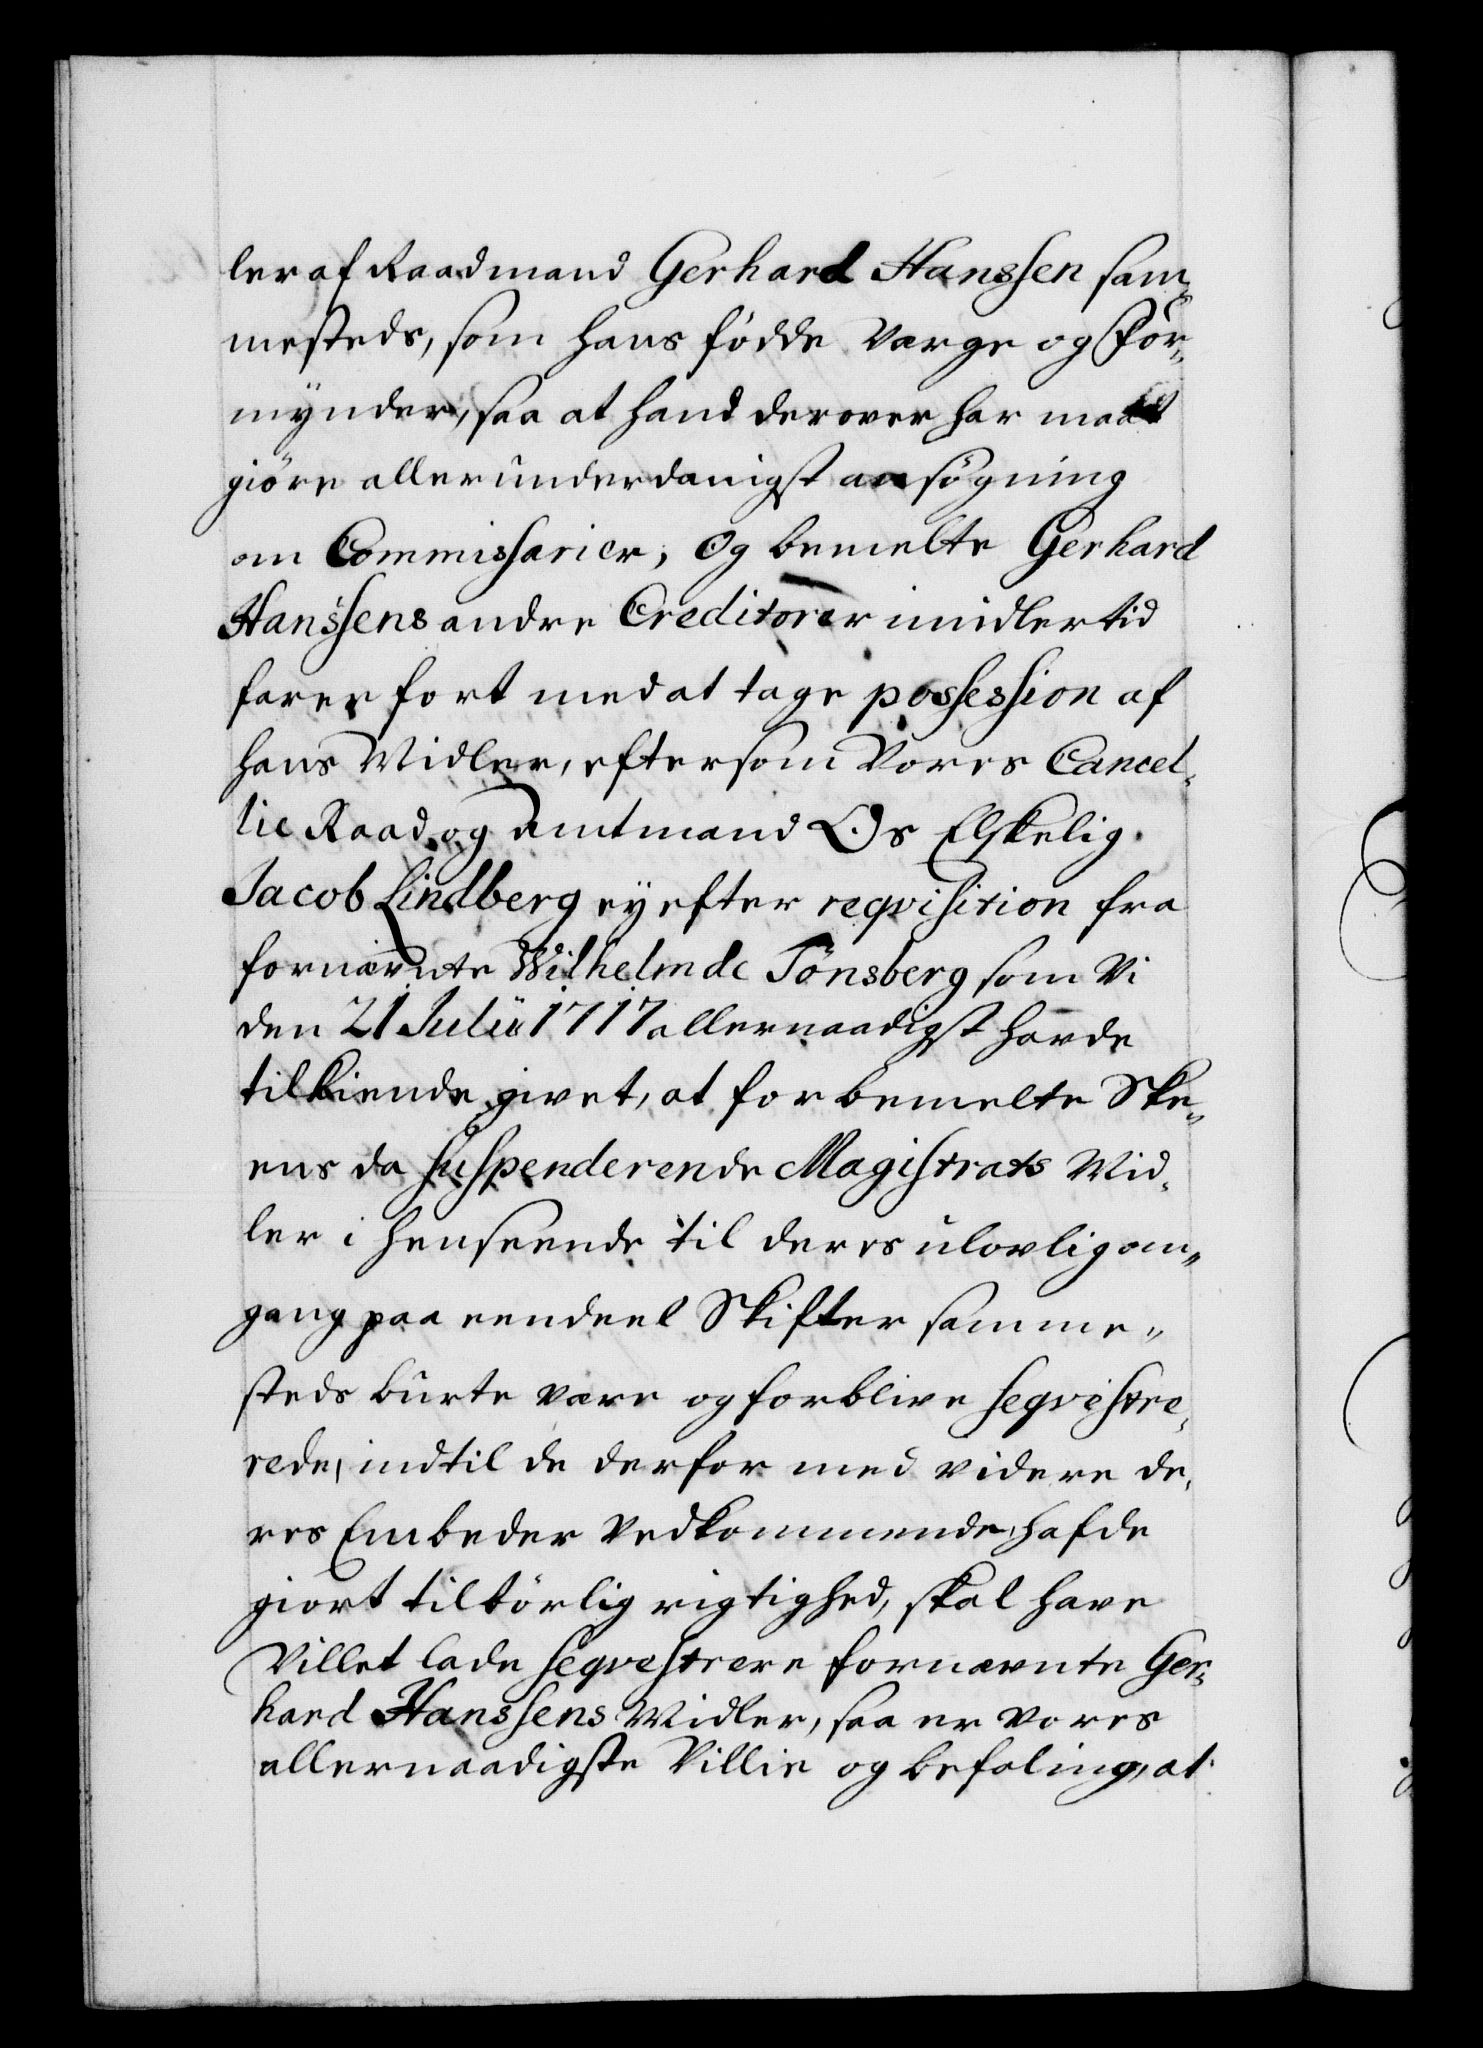 ler af Raadmand Gerhard Hanssen sam-
mesteds, som hans fødde Værge og For-
mynder, saa at hand derover har maat
giöre allerunderdanigst ansögning
om Commissarier, Og bemelte Gerhard
Hanssens andre Creditorer imidlertid
farer fort med at tage possession af
hans Midler, eftersom Vores Cancel-
lie Raad og Amtmand Os Elskelig
Jacob Lindberg ey efter reqvisition fra
fornævnte Wilhelm de Tönsberg som Vi
den 21 Julii 1717 allernaadigst hafde
tilkiende givet, at forbemelte Ske-
ens da suspenderende Magistrats Mid-
ler i henseende til deres ulovlig om-
gang paa eendeel Skifter samme-
steds burte være og forblive seqvestre-
rede, indtil de derfor med videre de-
res Embeder vedkommende, hafde
giort tilbörlig rigtighed, skal have
Villet lade seqvestrere fornævnte Ger-
hard Hanssens Midler, saa er Vores
allernaadigste Villie og befaling, at